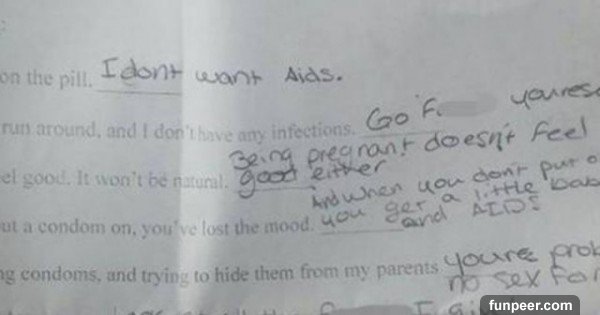 on the pill. I dont want Aids.
run around, and I don't have any infections. Go F. youres
Being pregnant doesn't feel
el good. It won't be natural. good either
And when you don't put o
ut a condom on, you've lost the mood. you get a little bab
and AIDS
ng condoms, and trying to hide them from my parents youre prob
no sex for
funpeer.com